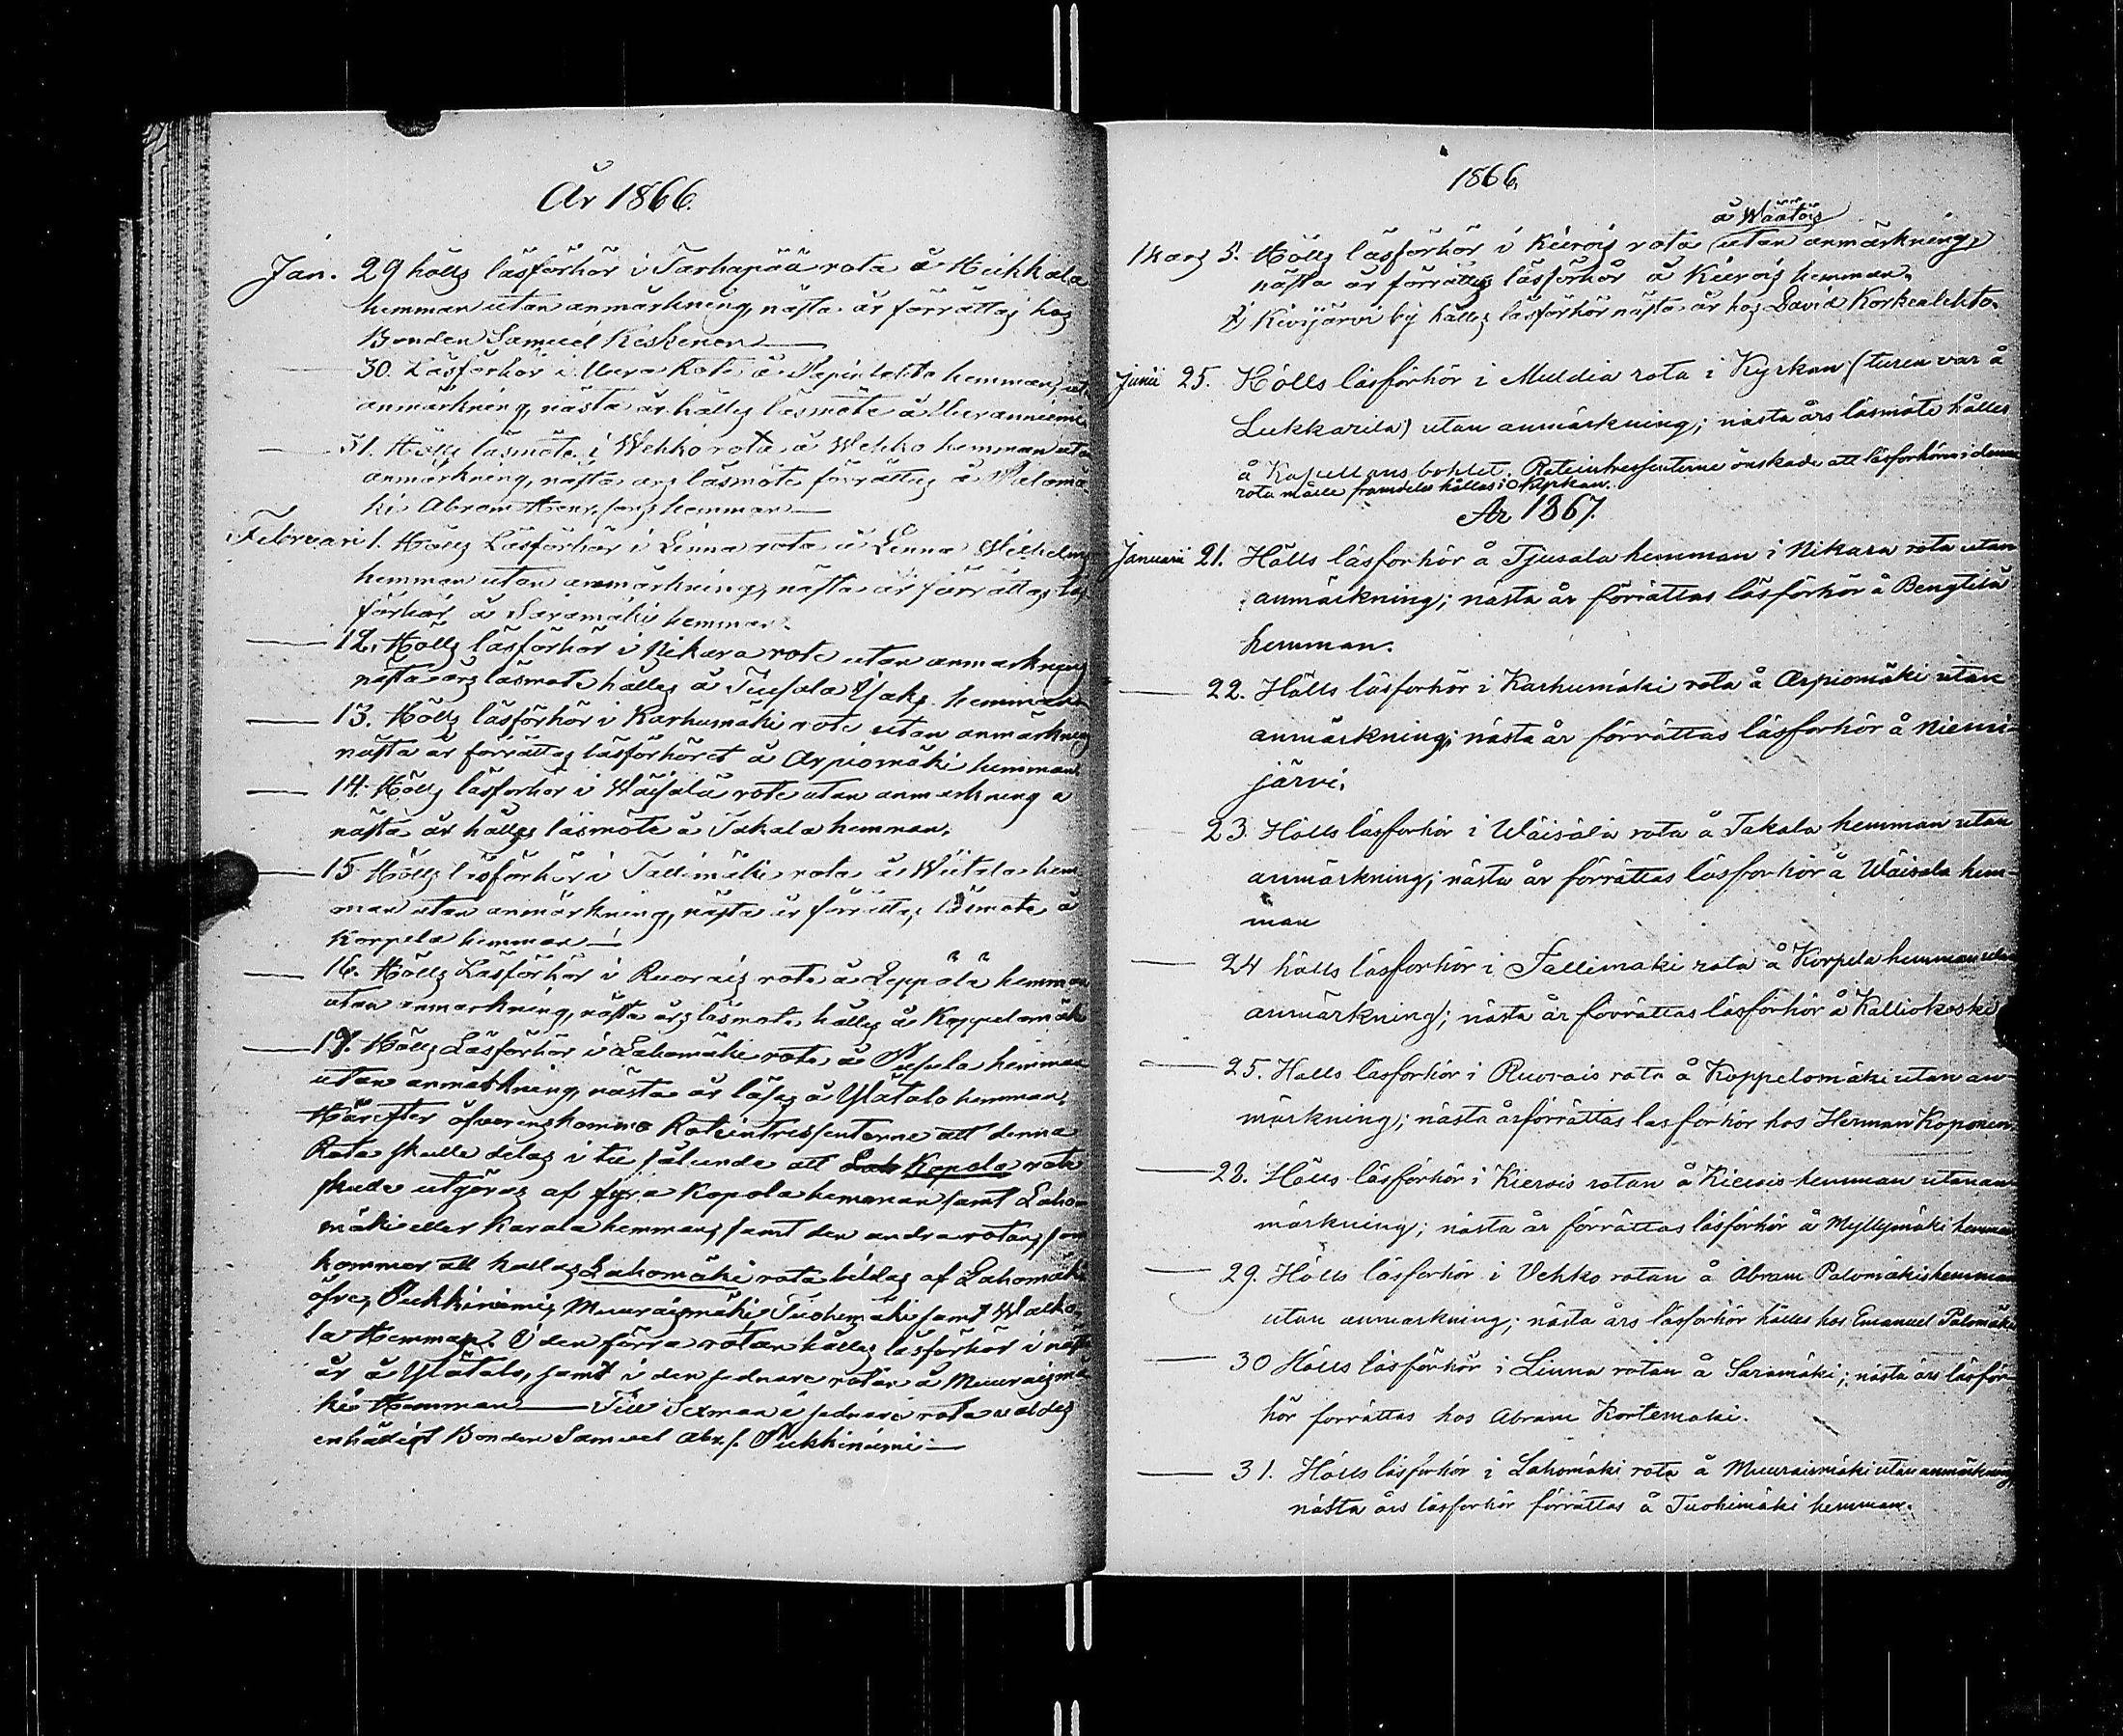 År 1866.
Jan. 29 hölls läsförhör i Tarhapää rota å Heikkala
hemman utan anmärkning, nästa år förrättas hos
Bonden Samuel Keskinen —
30. Läsförhör i Uura Rote å Sepinlehto hemman, ut.
anmärkning, nästa år hålles läsmöte å Uuranniemi.
— 31. Hölls läsmöte i Wehko rota å Wehko hemman utan
anmärkning, nästa års läsmöte förrättas å Palomä-
ki Abram Henr. sons hemman —
Februari 1. Hölls Läsförhör i Linna rota å Linna Wilhelms
hemman utan anmärkning, nästa år förrättas läs
förhör å Saramäki hemman.
— 12. Hölls läsförhör i Nikara rote utan anmärkning
nästa års läsmöte hålles å Tiusala Isaks hemman
— 13. Hölls läsförhör i Karhumäki rote utan anmärkning
nästa år förrättas läsförhöret å Arpiomäki hemman.
— 14. Hölls läsförhör i Wäisälä rote utan anmärkning o
nästa år hålles läsmöte å Takala hemman.
— 15 Hölls läsförhör i Tallimäki rota å Wiitala hem
man utan anmärkning, nästa år förrättas läsmöte å
Korpela hemman —
— 16. Hölls Läsförhör i Ruorais rote å Leppälä hemman
utan anmärkning, nästa års läsmöte hålles å Koppelomäki
— 19. Hölls Läsförhör i Lahomäki rote å Pupula hemman
utan anmärkning, nästa år läses å Ylätalo hemman,
Härefter öfverenskommo Roteintressenterne att denna
Rota skulle delas i tu sålunda att Lah Kopola rote
skulle utgöras af fyra Kopola hemman samt Laho-
mäki eller Karala hemman, samt den andra rotan, som
kommer att kallas Lahomäki rota bildas af Lahomäki
öfre, Pukkiniemi, Muuraismäki, Tuohimäki samt Walko-
la Hemman. I den förra rotan hålles läsförhör i nästa
år å Ylätalo, samt i den sednare rotan å Muuraismä
ki Hemman — Till Sexman i sednare rota valdes
enhäligt Bonden Samuel Abr. s. Pukkiniemi —
1866.
å Wäätäis
Mars 5. Hölls läsförhör i Kiirois rota utan anmärkning,
nästa år förrättas läsförhör å Kiirois hemman.
I Kivijärvi by hålles läsförhör nästa år hos David Korkealehto.
Junii 25. Hölls läsförhör i Muldia rota i Kyrkan (turen var å
Lukkarila) utan anmärkning; nästa års läsmöte hålles
å Kapellansbohlet. Roteintressenterne önskade att läsförhören i denna
rota måtte framdeles hållas i Kyrkan.
År 1867.
Januarii 21. Hölls läsförhör å Tjusala hemman i Nikara rota utan
anmärkning; nästa år förrättas läsförhör å Bengtilä
hemman.
— 22. Hölls läsförhör i Karhumäki rota å Arpiomäki utan
anmärkning; nästa år förrättas läsförhör å Niemi-
järvi.
23. Hölls läsförhör i Wäisälä rota å Takala hemman utan
anmärkning; nästa år förrättas läsförhör å Wäisälä hem-
man
— 24 hölls läsförhör i Tallimäki rota å Korpela hemman utan
anmärkning; nästa år förrättas läsförhör å Kalliokoski
— 25. Hölls läsförhör i Ruorais rota å Koppelomäki utan an-
märkning; nästa år förrättas läsförhör hos Herman Koponen.
— 28. Hölls läsförhör i Kierois rotan å Kierois hemman utan an-
märkning; nästa år förrättas läsförhör å Myllymäki hemman
— 29. Hölls läsförhör i Vehko rotan å Abram Palomäkis hemman
utan anmärkning; nästa års läsförhör hålles hos Emanuel Palomäki
— 30 Hölls läsförhör i Linna rotan å Saramäki; nästa års läsför-
hör förrättas hos Abram Kortemäki.
— 31. Hölls läsförhör i Lahomäki rota å Muuraismäki utan anmärkning,
nästa års läsförhör förrättas å Tuohimäki hemman.